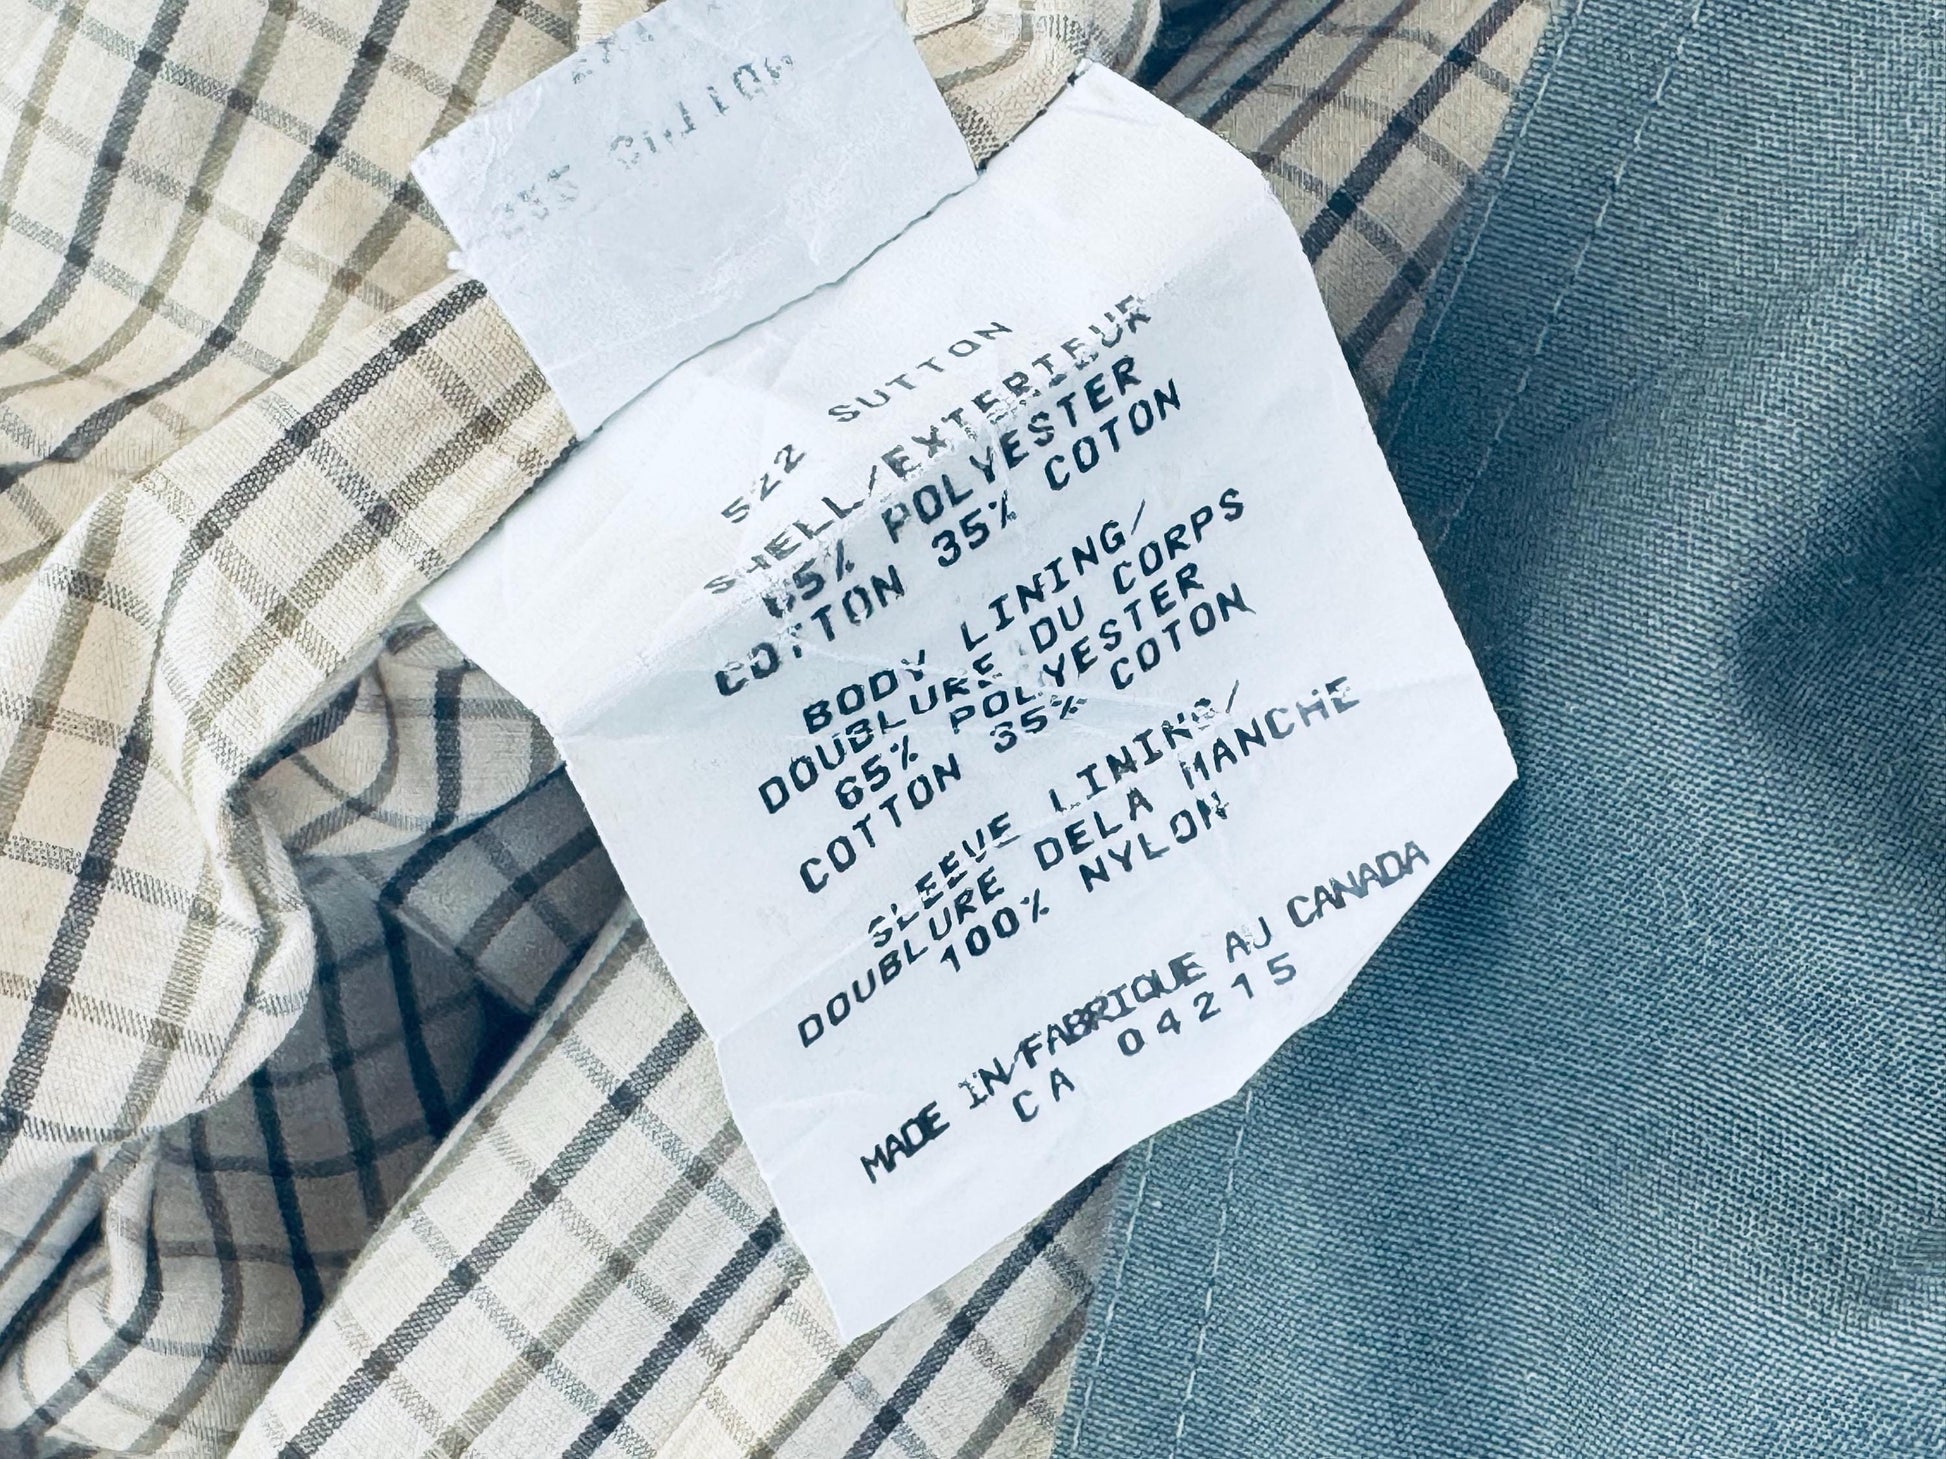 522 SUTTON
SHELL/EXTERIEUR
65% POLYESTER
COTTON 35% COTON
BODY LINING/
DOUBLURE DU CORPS
65% POLYESTER
COTTON 35% COTON
SLEEVE LINING/
DOUBLURE DELA MANCHE
100% NYLON
MADE IN/FABRIQUE AU CANADA
CA 04215